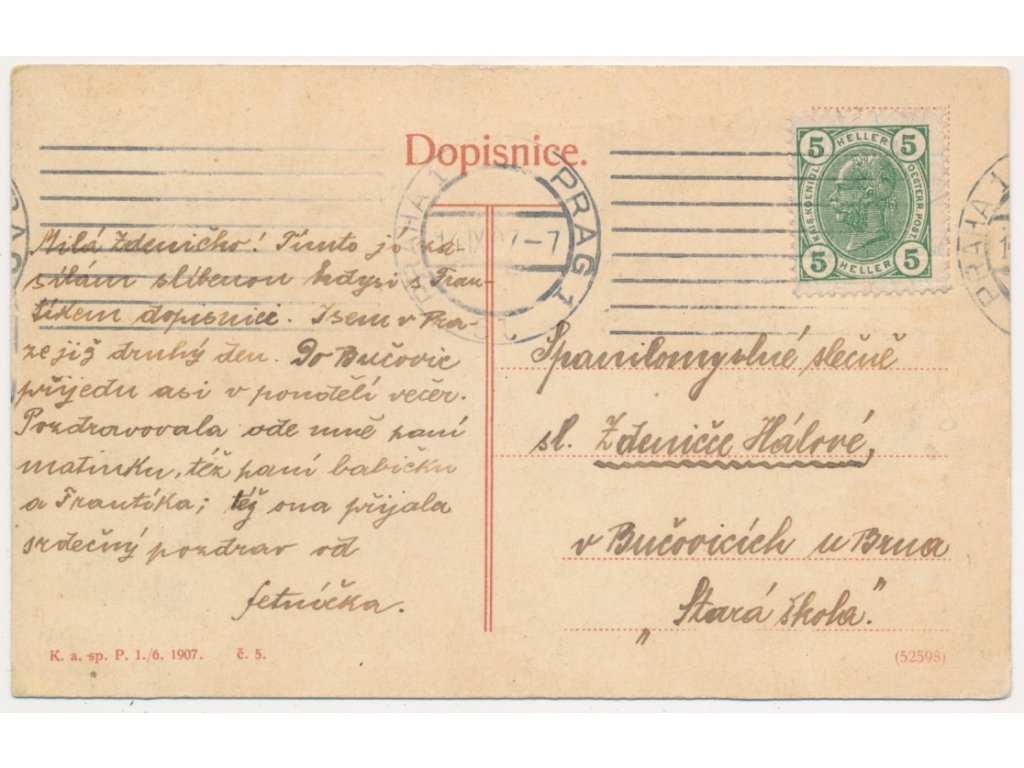 Dopisnice.
PRAHA 1 PRAG 1
-7
PRAHA 1
HELLER
5 5
KAIS. KOENIGL. OESTERR. POST.
5 5
HELLER
Milá Zdeničko! Tímto jí za
sílám slíbenou kdysi s Fran-
tíkem dopisnici. Jsem v Pra-
ze již druhý den. Do Bučovic
přijedu asi v pondělí večer.
Pozdravovala ode mně paní
matinku, též paní babičku
a Frantíka; též ona přijala
srdečný pozdrav od
Spanilomyslné slečně
sl. Zdeničce Hálové,
v Bučovicích u Brna
„Stará škola."
K. a. sp. P. 1./6. 1907. č. 5.
(52598)